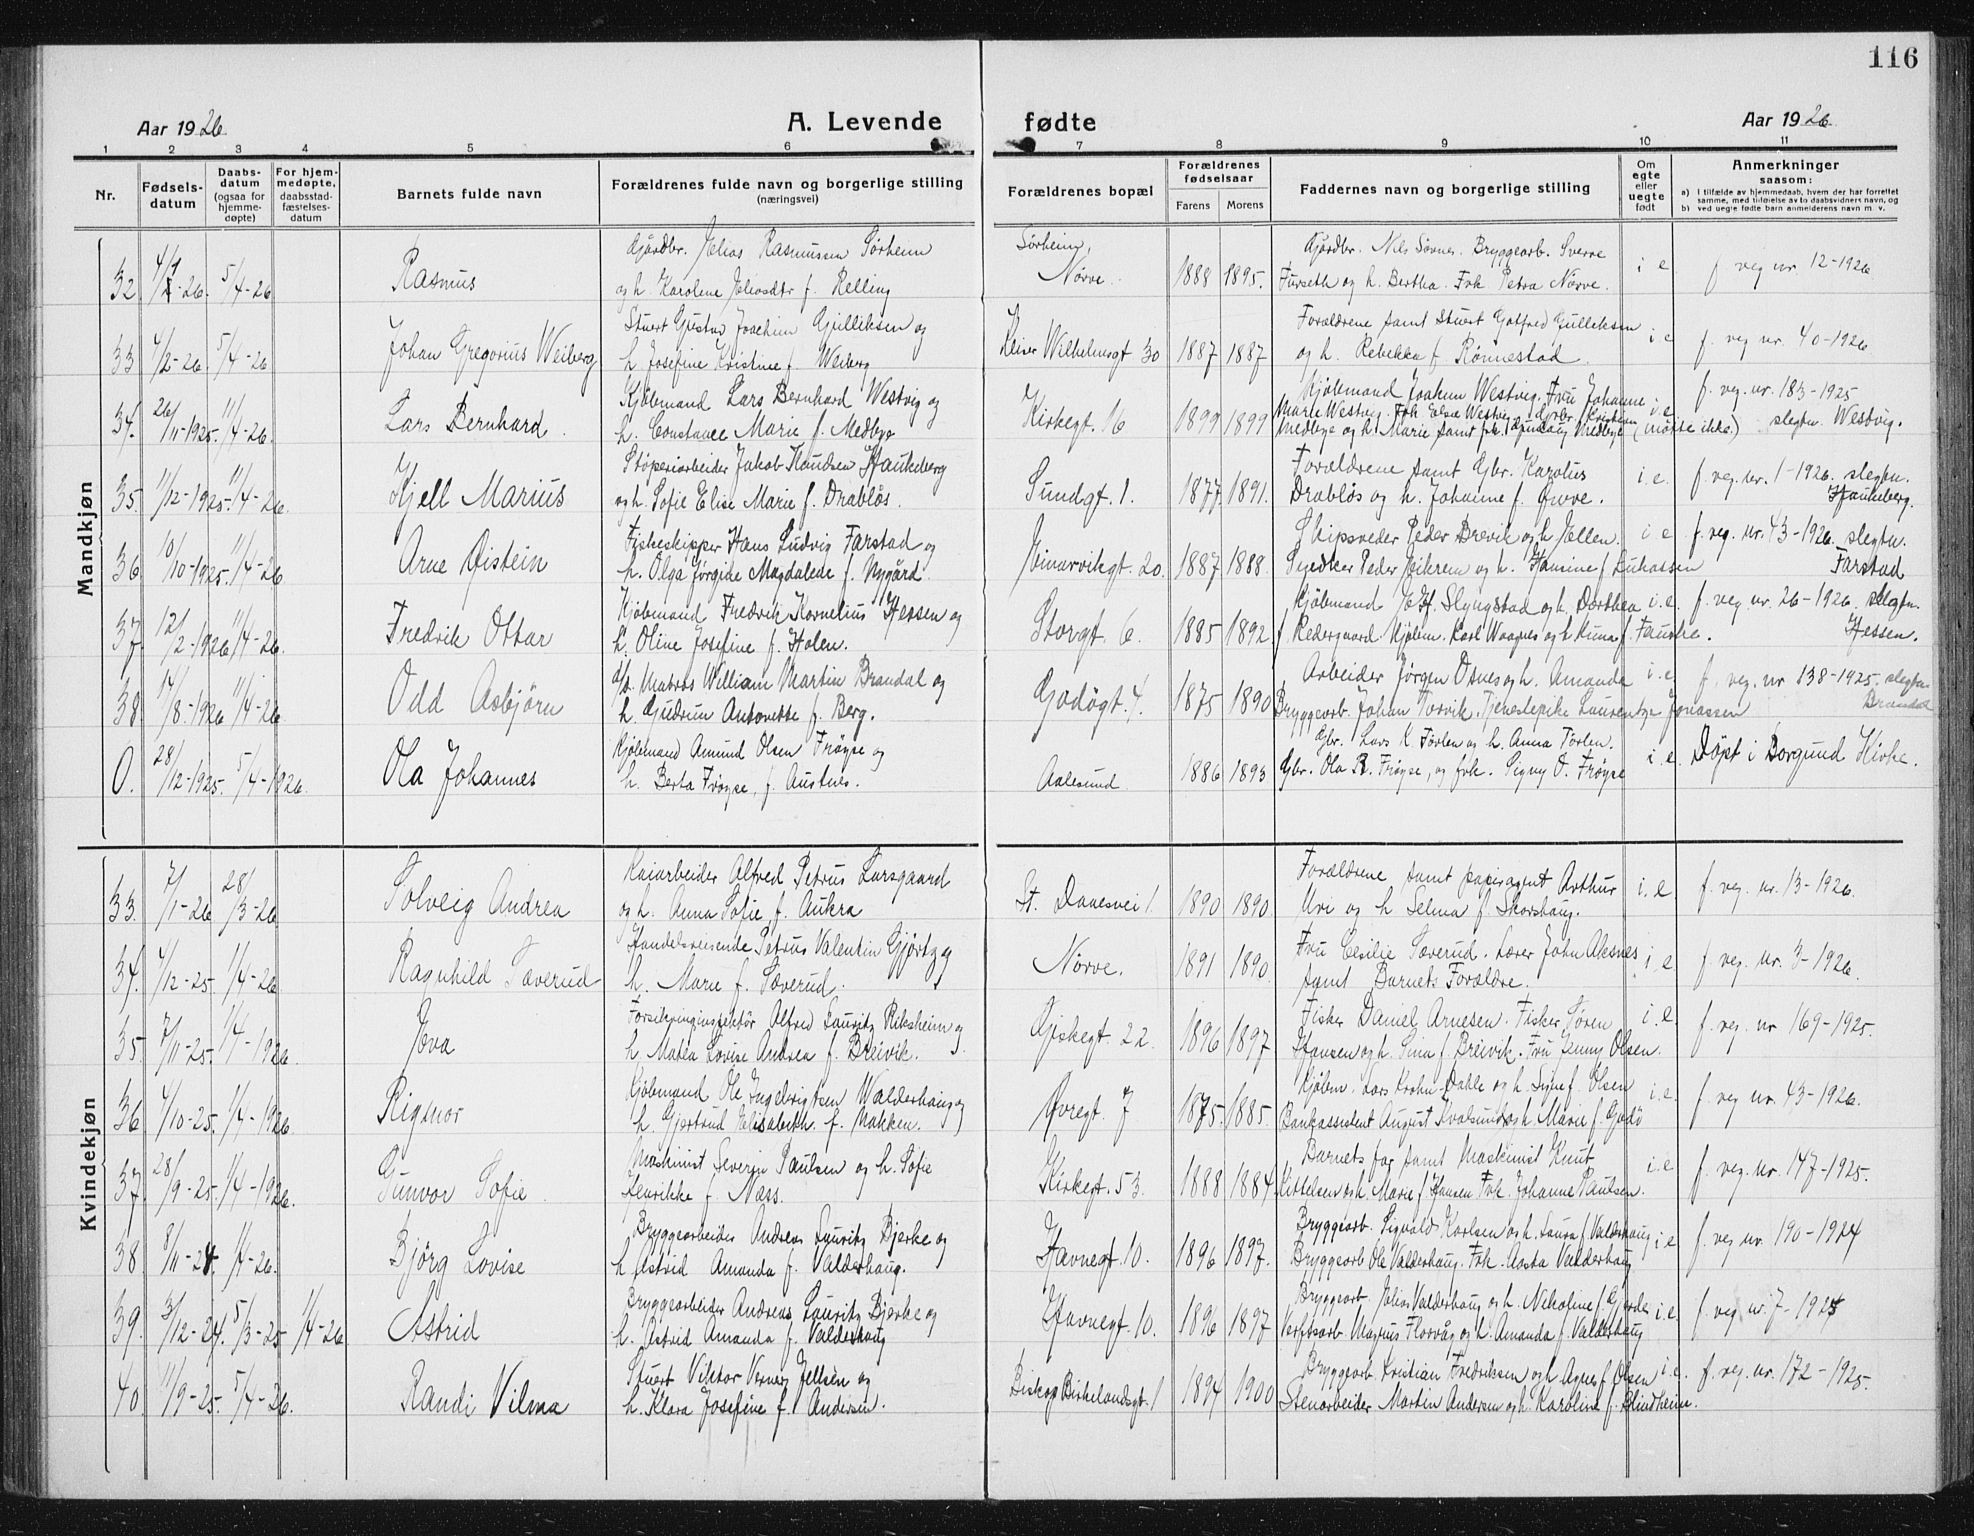 116
Aar 1926
A. Levende fødte
Aar 1926
1 2 3 4 5 6 7 8 9 10 11
Nr.
Fødsels-
datum
Daabs-
datum
(ogsaa for
hjemme-
døpte)
For hjem-
medøpte,
daabsstad-
fæstelses-
datum
Barnets fulde navn
Forældrenes fulde navn og borgerlige stilling
(næringsvei)
Forældrenes bopæl
Forældrenes
fødselsaar
Farens Morens
Faddernes navn og borgerlige stilling
Om
egte
eller
uegte
født
Anmerkninger
saasom:
a) I tilfælde av hjemmedaab, hvem der har forrettet
samme, med tilføielse av to daabsvidners navn, og
b) ved uegte fødte barn anmelderens navn m. v.
Mandkjøn
32 5/4-26 Rasmus
Gjårdbr. Rasmussen Sørheim
og h. Karoline f. Relling
Sørheim,
Nørve. 1888 1895.
Gjårdbr. Nils Bryggearb. Sverre
Furseth og h. Bertha. Frk Petra Nørve.
i e f veg nr. 12-1926
33 4/2-26. 5/4-26 Johan Gregorius Weiberg
Stuert Gustav Joachim Gulliksen og
h. Josefine Kristine f. Weiberg
Keiser Wilhelmsgt 30 1887 1887
Forældrene samt Stuert Gotfred Gulliksen
og h. Rebekka f. Rønnestad.
i e f. veg nr. 40-1926
34. 26/11-1925. 11/4-26. Lars Bernhard.
Kjøbmand Lars Bernhard Westvig og
h. Constance Marie f. Medbye
Kirkegt. 16 1899 1899
Kjøbmand Joakim Westvig. Fru Johanne
Marie Westvig. Frk Westvig. Kristian
Medbye og h. Marie samt frk. Medbye (møtte ikke.)
i e f. veg. nr. 183-1925
slegtn. Westvig.
35. 11/12-1925. 11/4-26. Kjell Marius
Støperiarbeider Jakob Knudsen Haukeberg
og h. Sofie Elise Marie f. Drabløs.
Sundgt. 1. 1877. 1891.
Forældrene samt Gbr. Karolus
Drabløs og h. Johanne f.
i e. f. veg. nr. 1-1926. slegtn.
Haukeberg.
36 10/10-1925. 11/4-26. Arne Øistein
Fiskeskipper Hans Ludvig Farstad og
h. Olga Jørgine Magdalede f. Nygård.
20. 1887 1888.
Skipsreder Peder Brevik og h Ellen.
Snedker Peder og h. Hansine f Lukassen
i e f. veg. nr. 43-1926. slegtn.
Farstad
37. 12/2-1926 11/4-26. Fredrik Ottar
Kjøbmand Fredrik Kornelius Hessen og
h. Oline Josefine f. Holen.
Storgt. 6. 1885 1892.
Kjøbmand Slyngstad og h. Dorthea
f Kjøbm. Karl Waagnes og h f.
i. e. f. veg nr. 26-1926. slegtn.
Hessen.
38. 17/8-1926 11/4-26 Odd Asbjørn
Matros William Martin Brandal og
h. Gudrun Antonette f. Berg.
Godøgt. 4. 1875 1890
Arbeider Jørgen Osnes og h. Amanda
Bryggearb. Johan Tjenestepike Jonassen
i. e. f. veg. nr 138-1925. slegtn.
Brandal
0. 28/12-1925. 5/4-1926. Ola Johannes
Kjøbmand Amund Olsen Frøyse og
h. Berta Frøyse, f. Austnes.
Aalesund. 1886 1893
Gbr. Lars K Tørlen og h. Anna Tørlen.
Gbr. Ola R. Frøyse, og frk. Signy O. Frøyse
i. e. Døpt i Borgund Kirke.
Kvindekjøn
33. 7/1-26 28/3-26 Solveig Andrea
Kaiarbeider Alfred Petrus Larsgaard
og h. Anna Sofie f. Aukra
St. Danesvei 1. 1890 1890
Forældrene samt papiragent Arthur
Uri og h Selma f.
i. e f. veg. nr. 13-1926.
34. 4/12-25 1/4-26 Ragnhild Sæverud
Handelsreisende Petrus Valentin Gjørtz og
h. Marie f. Sæverud.
Nørve. 1891 1890
Fru Cesilie Sæverud. Lærer John Aksnes
samt Barnets Forældre.
i. e. f. veg. nr. 3-1926.
35. 7/11-25. 1/4-1926. Eva
Alfred Lauritz Riksheim og
h. Matea Lovise Andrea f. Breivik.
Giskegt. 22. 1896 1897
Fisker Daniel Arnesen. Fisker Søren
Hansen og h. Sina f Breivik. Fru Jenny Olsen.
i. e. f. veg. nr 169-1925.
36 4/10-25. 1/4-1926. Rigmor
Kjøbmand Ole Ingebrigtsen Walderhaug og
h. Gjertrud Elisabeth. f. Makken.
Øvregt. 7 1875. 1885.
Kjøbm. Lars Krohn-Dahle og h. f. Olsen
Bankassistent August og h Marie f. Godø
i. e. f veg nr. 43-1926.
37. 28/9-25. 1/4-1926. Gunvor Sofie.
Maskinist Severin Paulsen og h. Sofie
Henrikke f. Næss.
Kirkegt. 53. 1888 1884
Barnets far samt Maskinist Knut
Kittelsen og h. Marie f Hansen Frk. Johanne Paulsen.
i. e f. veg. nr. 147-1925.
38. 8/11-24. 1/4-26. Bjørg Lovise
Bryggearbeider Andreas Lauritz Bjerke og
h Astrid Amanda f. Valderhaug.
Havnegt. 10. 1896 1897.
Bryggearb. Sigvald Karlsen og h. Laura f Valderhaug
Bryggearb Ole Valderhaug. Frk. Aasta Valderhaug
i e f. veg nr. 190-1924
39. 3/12-24. 5/3-25 1/4-26 Astrid
Bryggearbeider Andreas Lauritz Bjerke og
h. Astrid Amanda f. Valderhaug
Havnegt. 10. 1896 1897
Bryggearb. Valderhaug og h. Nikoline f. Gjerde
Verftsarb. Magnus og h. Amanda f. Valderhaug
i. e. f. veg nr. 7-1925
40. 11/9-25. 5/4-26. Randi Vilma
Stuert Viktor Verner og
h. Klara Josefine f. Andersen.
Biskop Birkelandsgt. 1 1894 1900
Bryggearb. Kristian Fredriksen og h Agnes f Olsen
Stenarbeider Martin Andersen og h. Karoline f. Blindheim.
i. e. f. veg. nr. 172-1925.